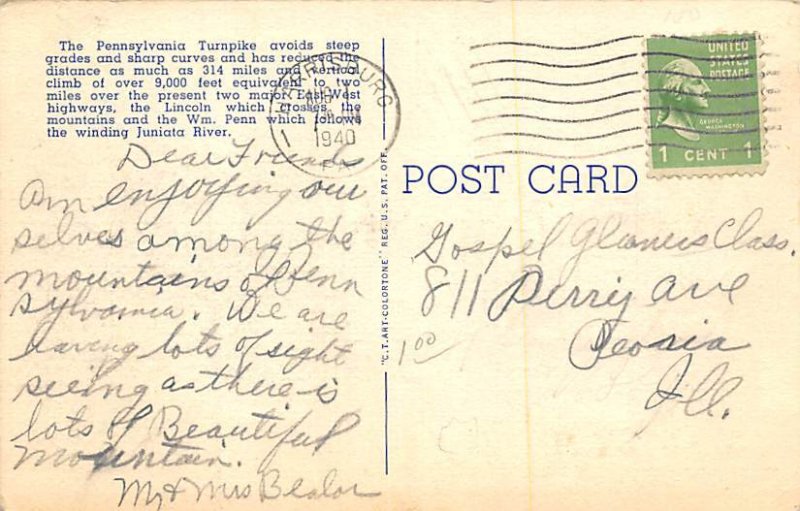 The Pennsylvania Turnpike avoids steep
grades and sharp curves and has reduced the
distance as much as 314 miles and vertical
climb of over 9,000 feet equivalent to two
miles over the present two major East-West
highways, the Lincoln which crosses the
mountains and the Wm. Penn which follows
the winding Juniata River.
HARRISBURG
AUG
1940
PA
UNITED
STATES
POSTAGE
GEORGE
WASHINGTON
1 CENT 1
POST CARD
"C.T. ART-COLORTONE" REG. U.S. PAT. OFF.
Dear Friends
Am enjoying our
selves among the
mountains of Penn
sylvania. We are
having lots of sight
seeing as there is
lots of Beautiful
Mountain.
Mr & Mrs
Gospel Gleaners Class.
811 Perry Ave
Peoria
Ill.
1 00